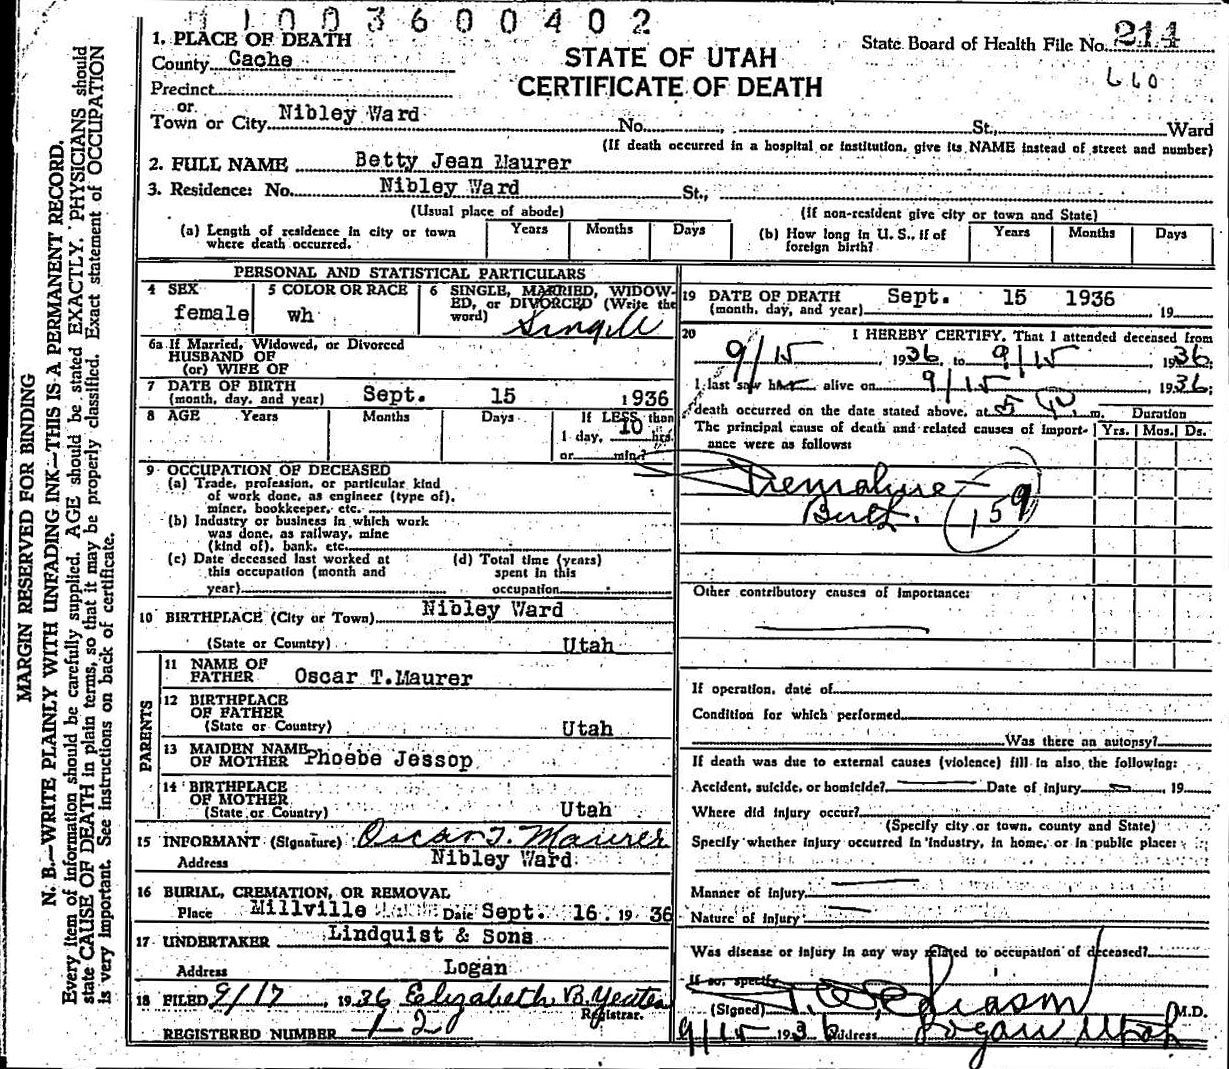 11003600402
1. PLACE OF DEATH
County Cache
Precinct
or
Town or City Nibley Ward No. St., Ward
STATE OF UTAH
CERTIFICATE OF DEATH
State Board of Health File No. 211
660
(If death occurred in a hospital or institution, give its NAME instead of street and number)
2. FULL NAME Betty Jean Maurer
3. Residence: No. Nibley Ward St.,
(Usual place of abode) (If non-resident give city or town and State)
(a) Length of residence in city or town where death occurred. Years Months Days
(b) How long in U. S., if of foreign birth? Years Months Days
PERSONAL AND STATISTICAL PARTICULARS
4 SEX female
5 COLOR OR RACE wh
6 SINGLE, MARRIED, WIDOWED, or DIVORCED (Write the word) Single
6a If Married, Widowed, or Divorced
HUSBAND OF
(or) WIFE OF
7 DATE OF BIRTH (month, day, and year) Sept. 15 1936
8 AGE Years Months Days If LESS than 1 day, 10 hrs. or min?
9 OCCUPATION OF DECEASED
(a) Trade, profession, or particular kind
of work done, as engineer (type of),
miner, bookkeeper, etc.
(b) Industry or business in which work
was done, as railway, mine
(kind of), bank, etc.
(c) Date deceased last worked at
this occupation (month and
year)
(d) Total time (years)
spent in this
occupation
10 BIRTHPLACE (City or Town) Nibley Ward
(State or Country) Utah
PARENTS
11 NAME OF FATHER Oscar T.Maurer
12 BIRTHPLACE OF FATHER
(State or Country) Utah
13 MAIDEN NAME OF MOTHER Phoebe Jessop
14 BIRTHPLACE OF MOTHER
(State or Country) Utah
15 INFORMANT (Signature) Oscar T. Maurer
Address Nibley Ward
16 BURIAL, CREMATION, OR REMOVAL
Place Millville Date Sept. 16 19 36
17 UNDERTAKER Lindquist & Sons
Address Logan
18 FILED 9/17, 1936 Elizabeth B. Yeates
Registrar.
REGISTERED NUMBER
19 DATE OF DEATH (month, day, and year) Sept. 15 1936 19
20 I HEREBY CERTIFY, That I attended deceased from
9/15, 1936, to 9/15, 1936;
I last saw her alive on 9/15, 1936;
death occurred on the date stated above, at 5 m. Duration
The principal cause of death and related causes of importance were as follows: Yrs. Mos. Ds.
Premature
Birth. 159
Other contributory causes of importance:
If operation, date of
Condition for which performed
Was there an autopsy?
If death was due to external causes (violence) fill in also the following:
Accident, suicide, or homicide? Date of injury, 19
Where did injury occur?
(Specify city or town, county and State)
Specify whether injury occurred in industry, in home, or in public place:
Manner of injury
Nature of injury
Was disease or injury in any way related to occupation of deceased?
If so, specify
(Signed) M.D.
9/15 1936 Address Logan Utah
MARGIN RESERVED FOR BINDING
N. B.—WRITE PLAINLY WITH UNFADING INK—THIS IS A PERMANENT RECORD.
Every item of information should be carefully supplied. AGE should be stated EXACTLY. PHYSICIANS should
state CAUSE OF DEATH in plain terms, so that it may be properly classified. Exact statement of OCCUPATION
is very important. See instructions on back of certificate.